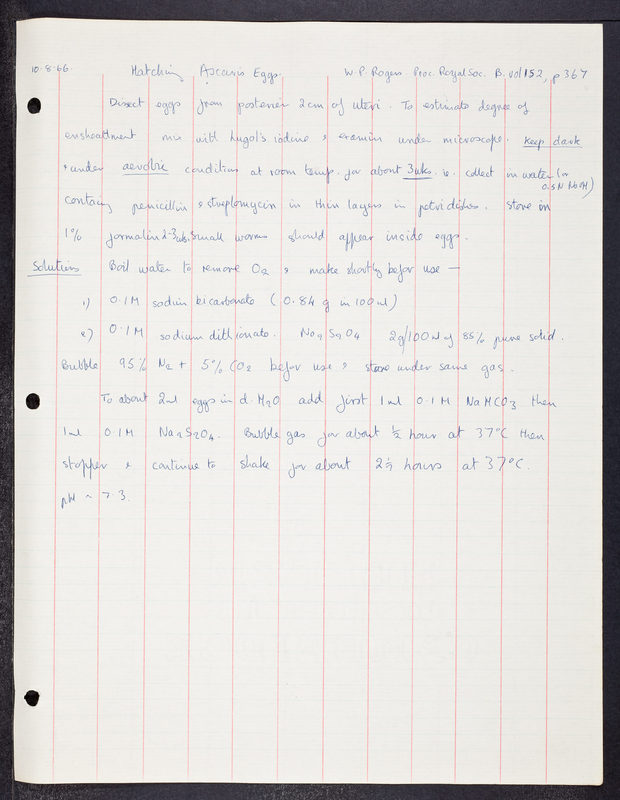 10.8.66. Hatching Ascaris Eggs. W.P. Rogers Proc. Royal Soc. B. vol 152, p 367
Dissect eggs from posterior 2cm of uteri. To estimate degree of
ensheathment mix with Lugol's iodine & examine under microscope. Keep dark
& under aerobic conditions at room temp. for about 3wks. i.e. collect in water (or
0.5N NaOH)
containing penicillin & streptomycin in thin layers in petridishes. Store in
1% formalin 2-3wks. Small worms should appear inside eggs.
Solutions Boil water to remove O2 & make shortly before use —
1) 0.1M sodium bicarbonate (0.84 g in 100ml)
2) 0.1M sodium dithionate. Na2S2O4 2g/100ml of 85% pure solid.
Bubble 95% N2 + 5% CO2 before use & store under same gas.
To about 2ml eggs in d.H2O add first 1ml 0.1M NaHCO3 then
1ml 0.1M Na2S2O4. Bubble gas for about ½ hour at 37°C then
stopper & continue to shake for about 2½ hours at 37°C.
pH ~ 7.3.